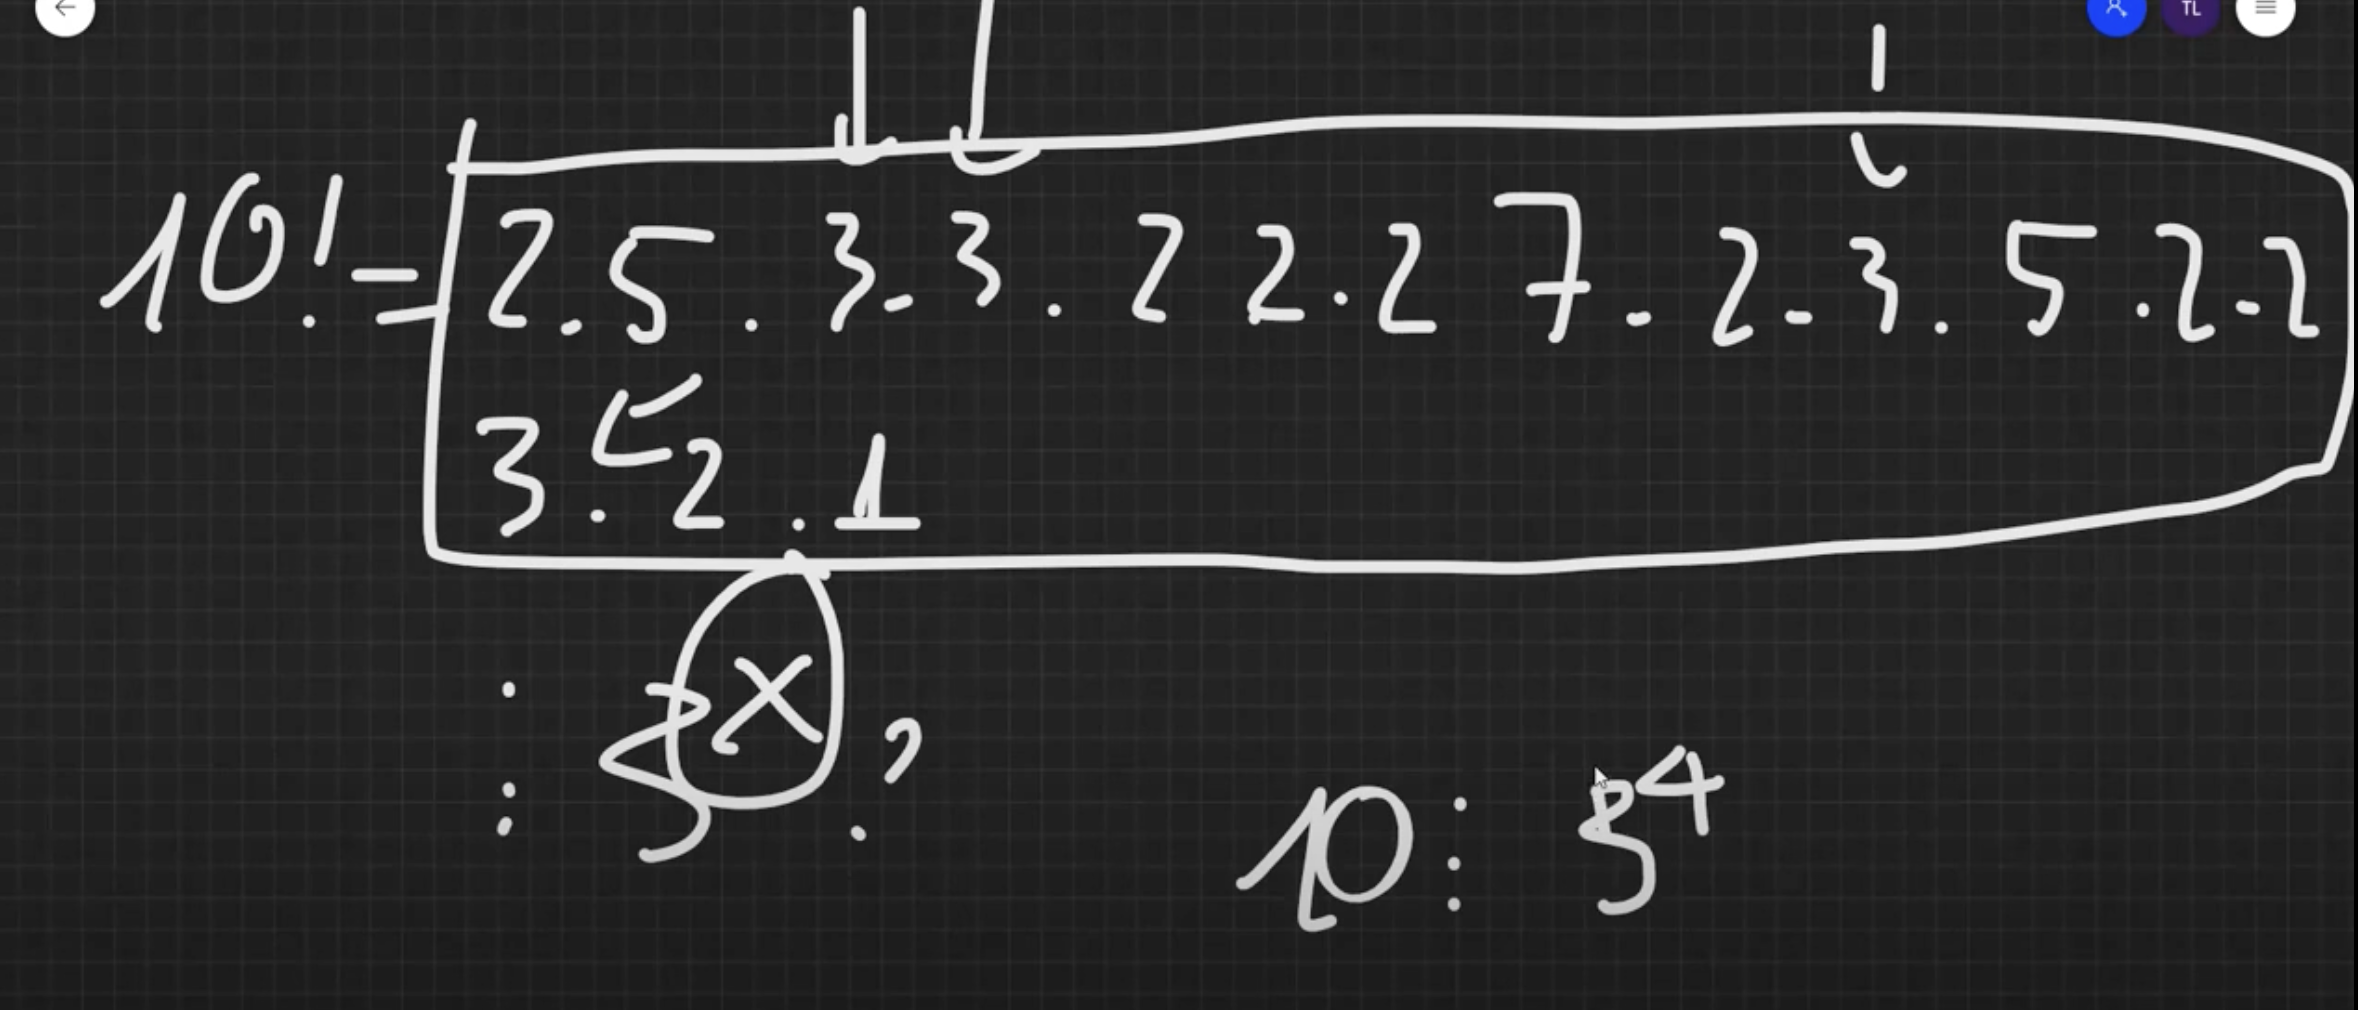 TL
10! = 2 . 5 . 3 . 3 . 2 2 . 2 7 . 2 . 3 . 5 . 2 . 2
3 . 2 . 1
⋮ 3^x ,
10 ⋮ 3^4